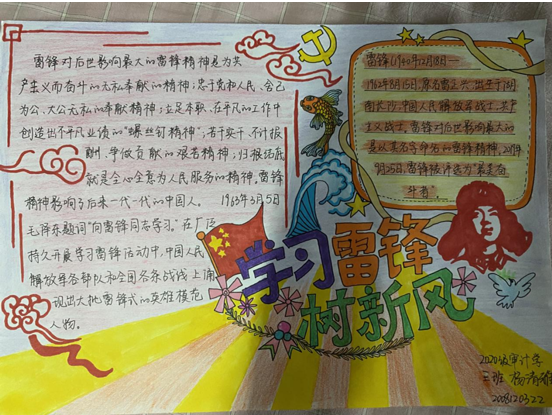 雷锋对后世影响最大的雷锋精神是为共
产主义而奋斗的无私奉献的精神；忠于党和人民、舍己
为公、大公无私的奉献精神；立足本职、在平凡的工作中
创造出不平凡业绩的“螺丝钉精神”；苦干实干、不计报
酬、争做贡献的艰苦精神；归根结底
就是全心全意为人民服务的精神，雷锋
精神影响了后来一代一代的中国人。 1963年3月5日
毛泽东题词“向雷锋同志学习。”在广泛
持久开展学习雷锋活动中，中国人民
解放军各部队和全国各条战线上涌
现出大批雷锋式的英雄模范
人物。
雷锋（1940年12月18日—
1962年8月15日，原名雷正兴，出生于湖
南长沙，中国人民解放军战士，共产
主义战士，雷锋对后世影响最大的
是以其名字命名的雷锋精神，2019年
9月25日，雷锋被评选为“最美奋
斗者”。
学习雷锋
树新风
2020级审计学
三班 杨清
2008120322